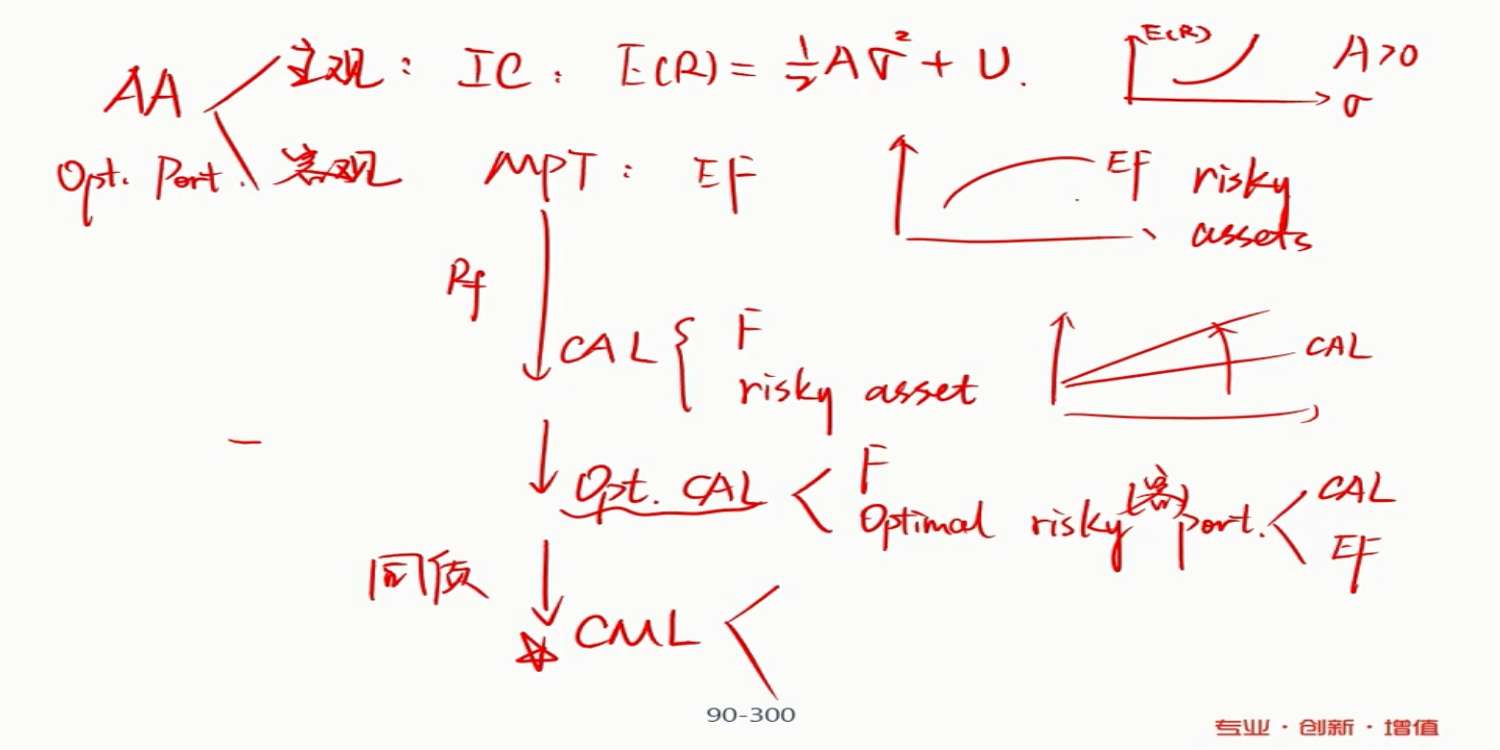 AA
主观: IC: E(R) = ½Aσ² + U.
E(R)
σ
A>0
Opt. Port.
客观 MPT: EF
EF risky
assets
Rf
CAL { F
risky asset
CAL
Opt. CAL < F
Optimal risky (客) port. < CAL
EF
同质
☆ CML <
90-300
专业·创新·增值